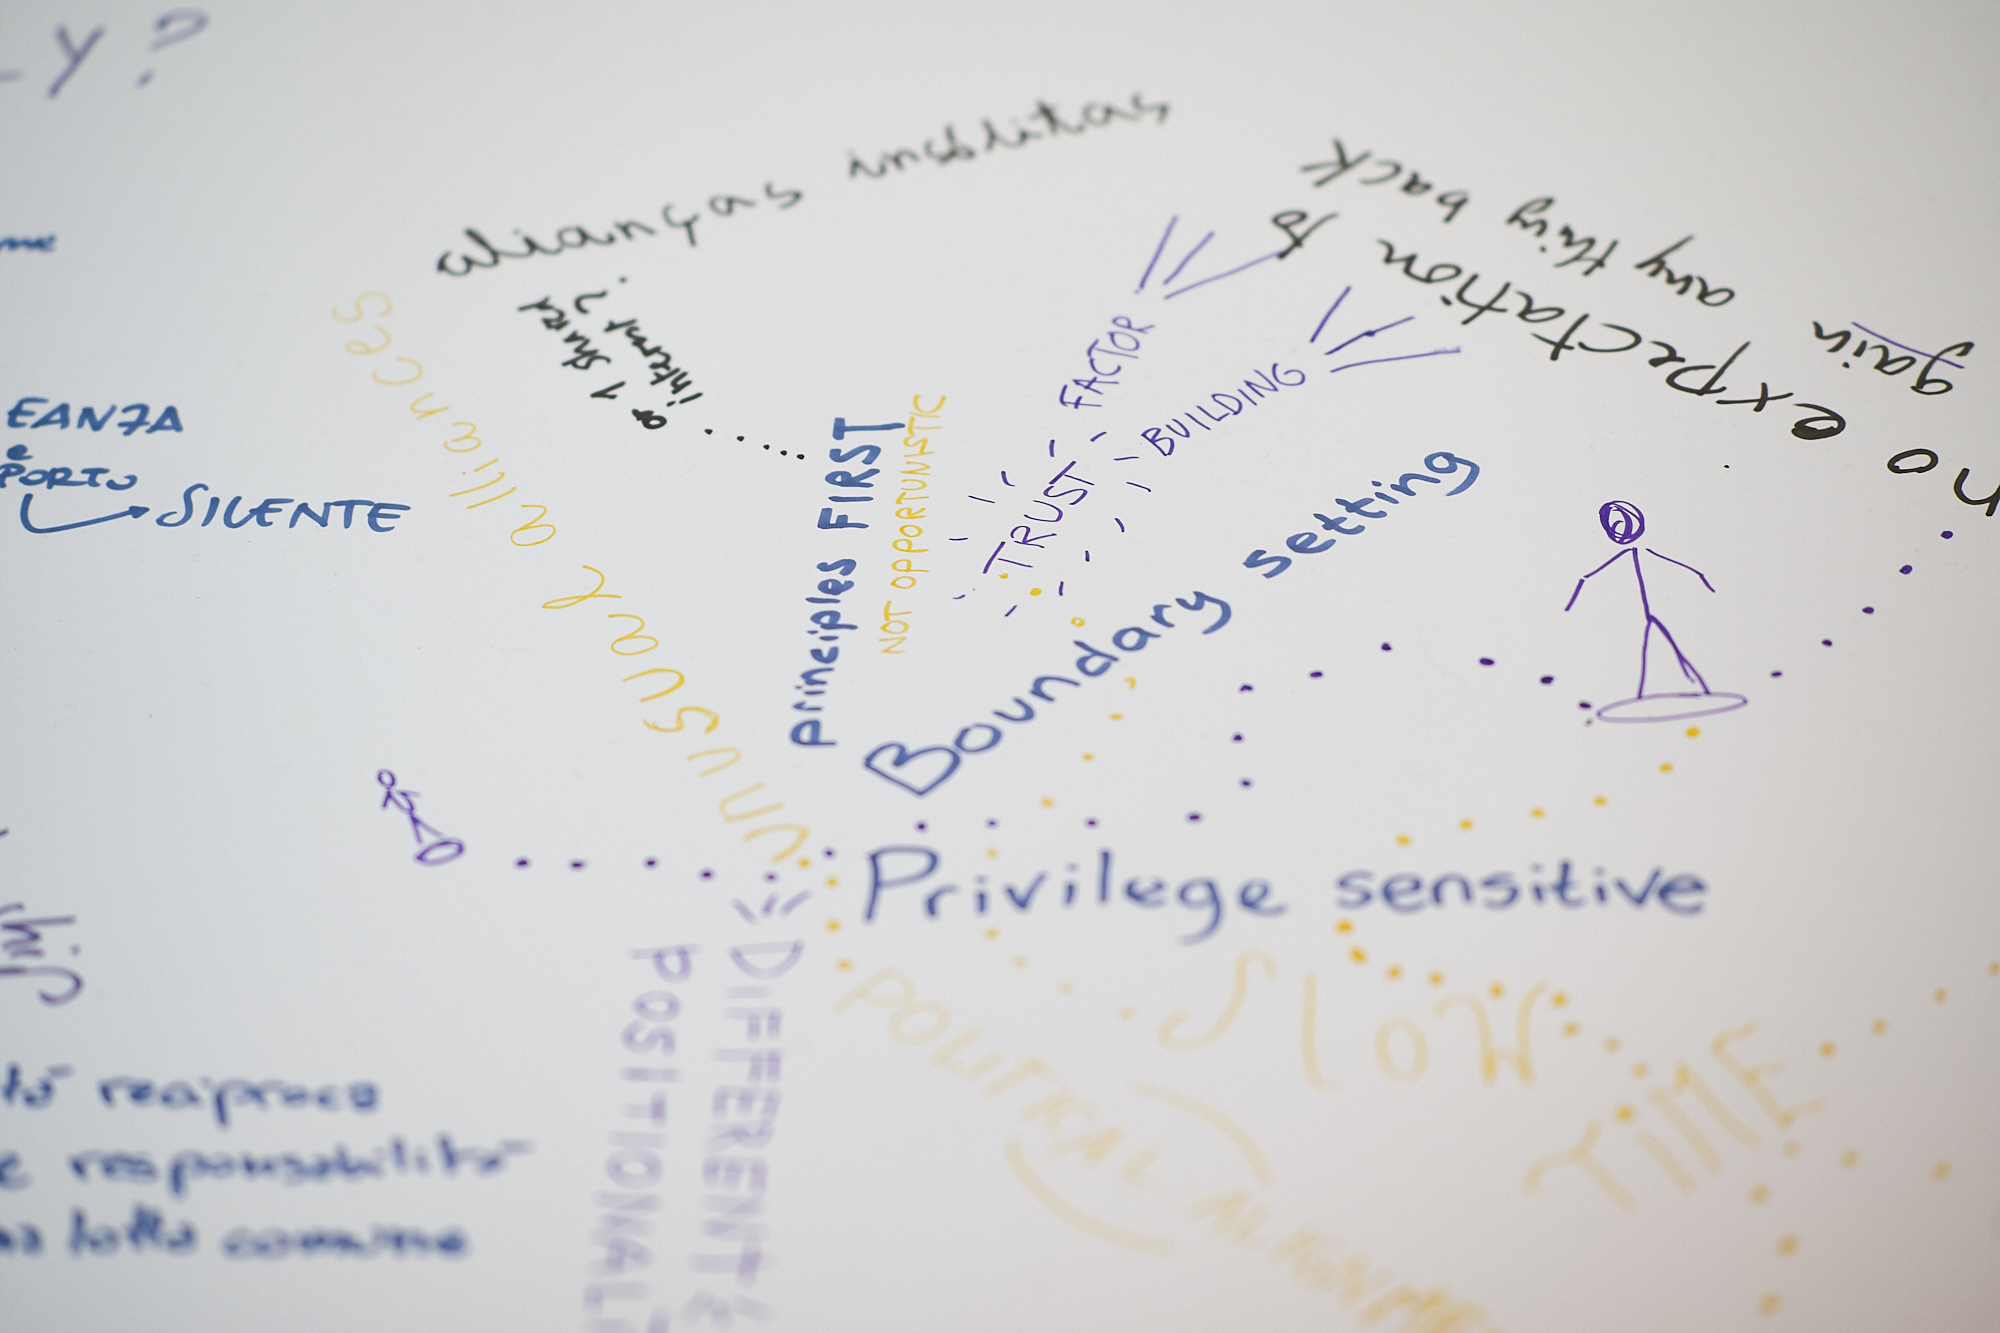 LY?
alianças insólitas
or 1 shared
interest?
no expectation to
gain any thing back
unusual alliances
EANZA
e
PORTO
SILENTE
principles FIRST
NOT OPPORTUNISTIC
TRUST
FACTOR
BUILDING
Boundary setting
Privilege sensitive
SloW
TiME
POLITICAL ALIGNM
DIFFERENT
POSITIONAL
reciproca
e responsabilità
lotta comune